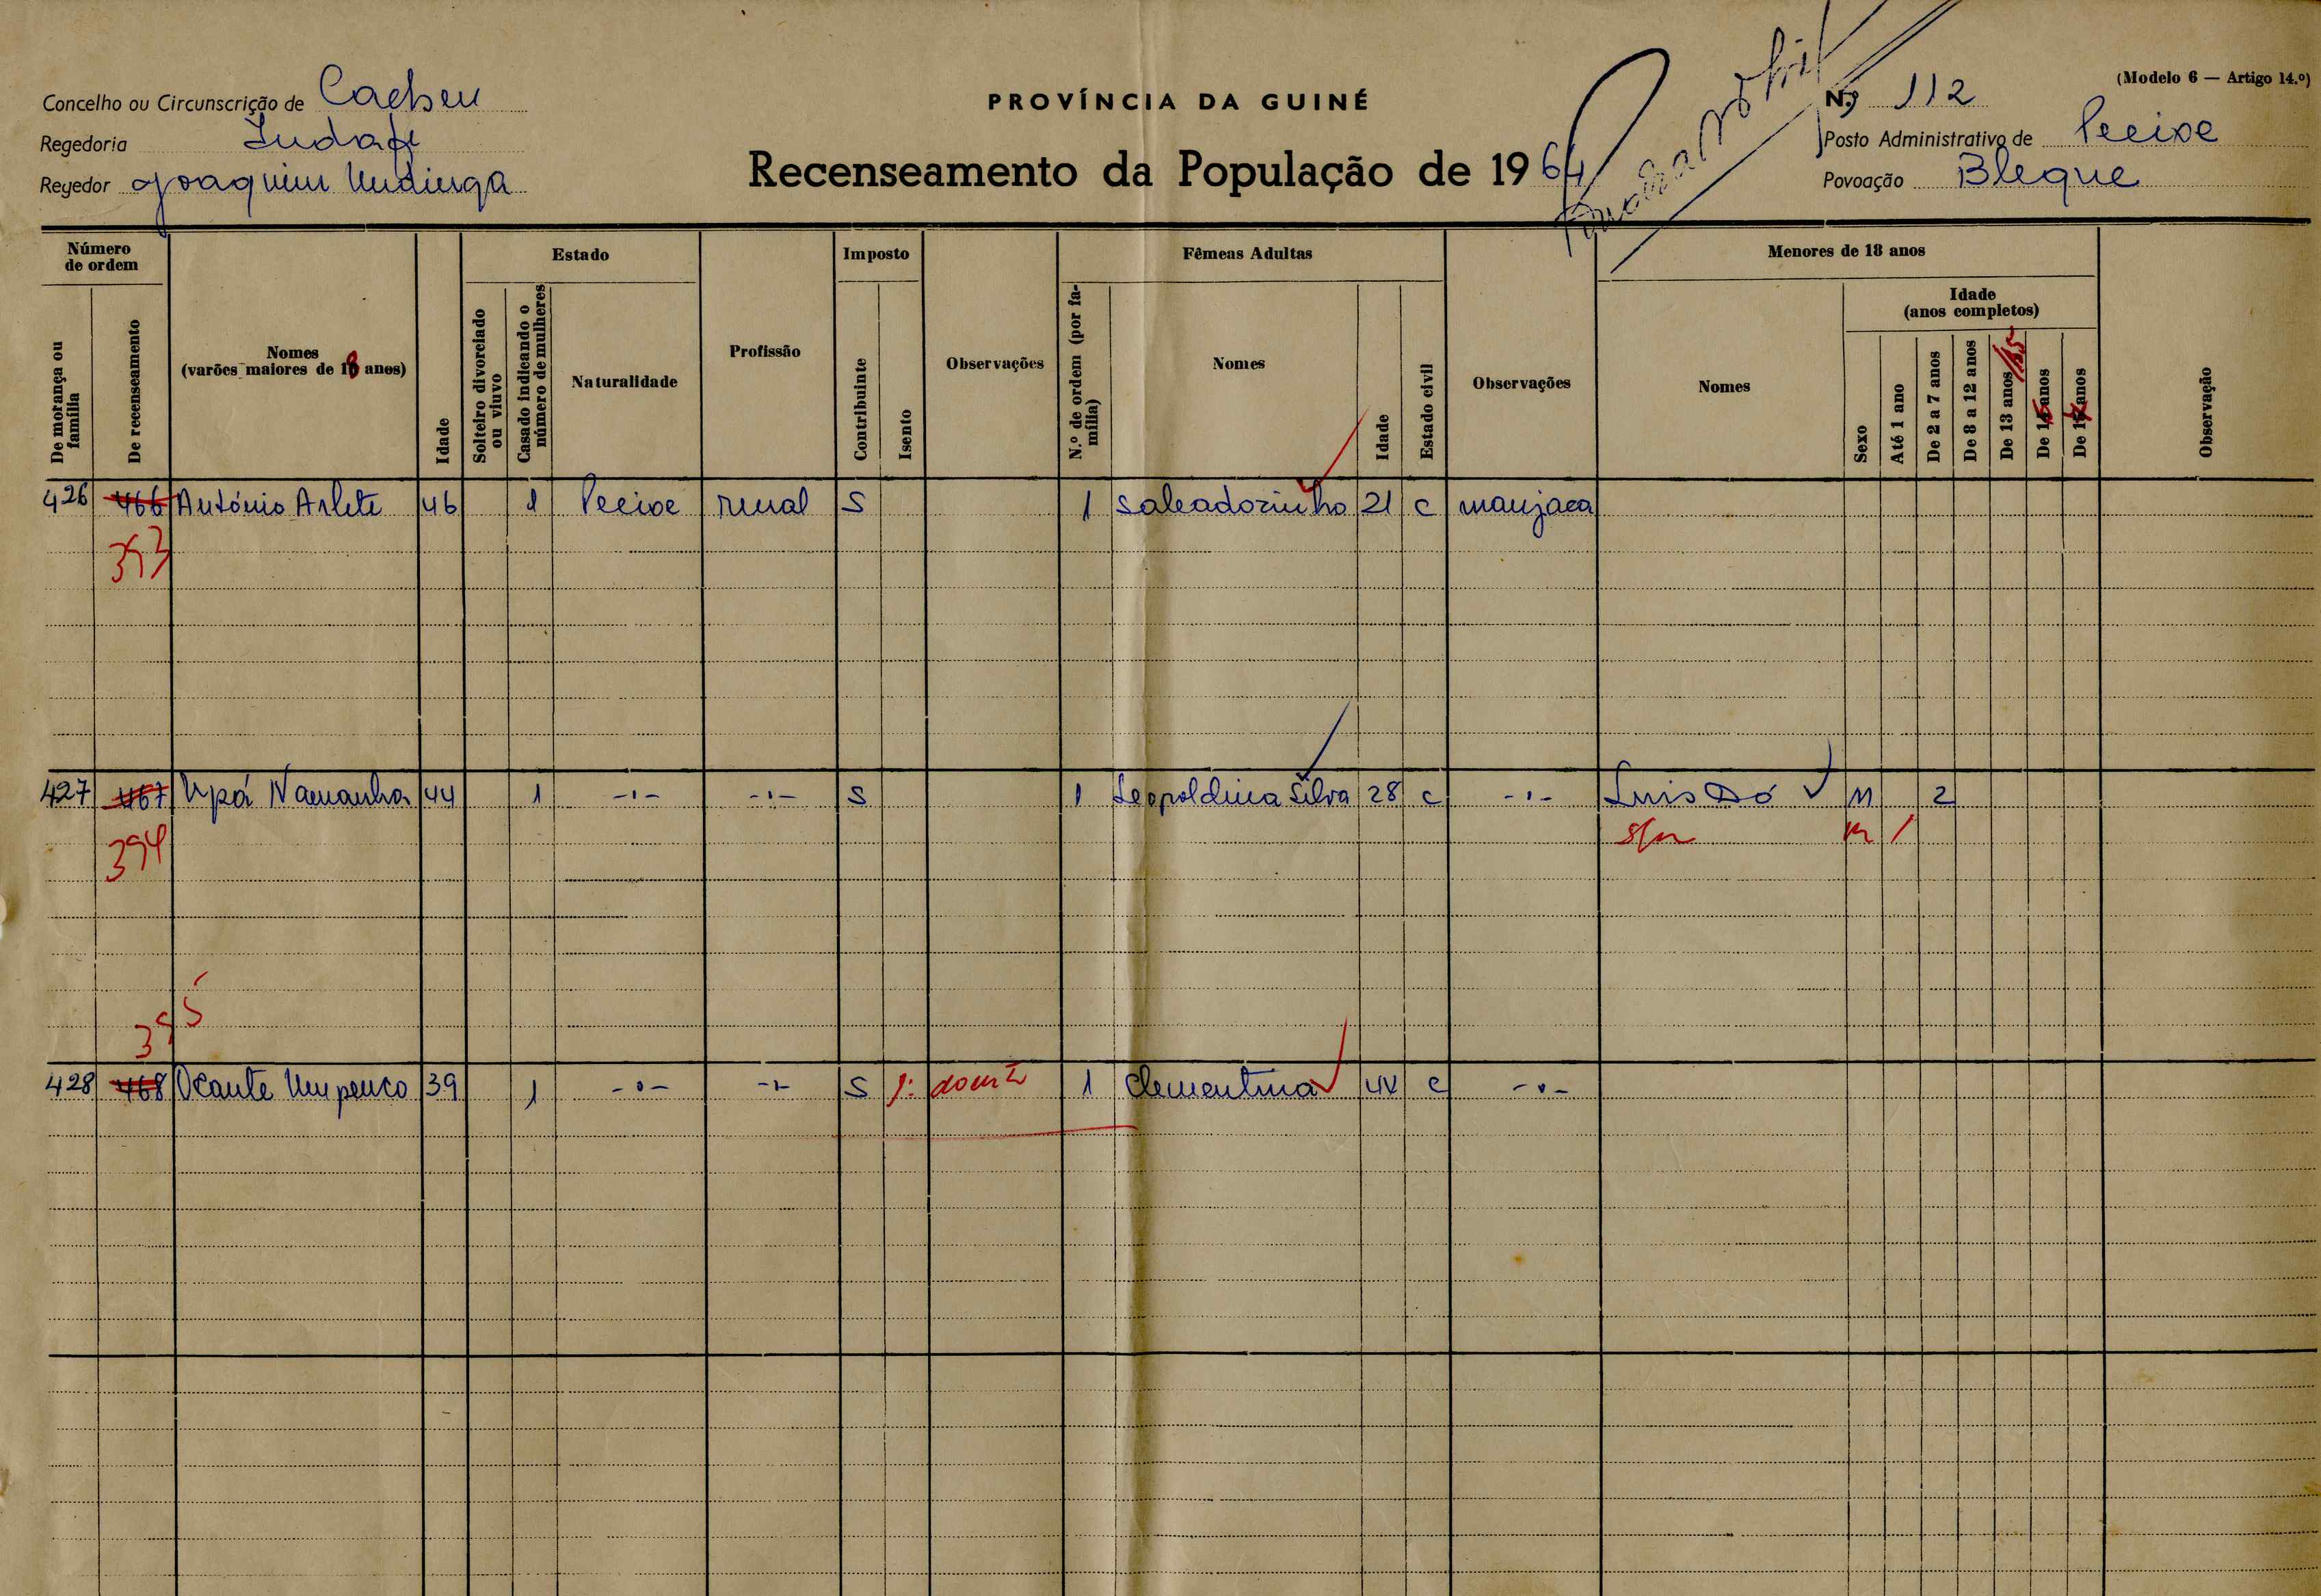 Concelho ou Circunscrição de Cacheu
Regedoria
Regedor Joaquim
PROVÍNCIA DA GUINÉ
Recenseamento da População de 1964
(Modelo 6 — Artigo 14.º)
N.º 112
Posto Administrativo de Pecixe
Povoação Bleque
Número de ordem
De morança ou família
De recenseamento
Nomes
(varões maiores de 18 anos)
Idade
Estado
Solteiro divorciado ou viuvo
Casado indicando o número de mulheres
Naturalidade
Profissão
Imposto
Contribuinte
Isento
Observações
Fêmeas Adultas
N.º de ordem (por família)
Nomes
Idade
Estado civil
Observações
Menores de 18 anos
Nomes
Idade
(anos completos)
Sexo
Até 1 ano
De 2 a 7 anos
De 8 a 12 anos
De 13 anos/15
De 15 anos
De 17 anos
Observação
426 466 António Arlete 46 1 Pecixe rural S 1 Salvadorinho 21 c manjaca
393
427 467 Upá Namanha 44 1 -"- -"- S 1 Leopoldina Silva 28 c -"- Luis Dó M 2
394 s/n m /
395
428 468 Ocante Umpenco 39 1 -"- -"- S 1 Clementina 44 c -"-